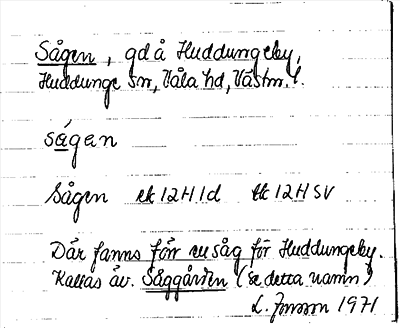 Sågen, gd å Huddungeby,
Huddunge sn, Våla hd, Västm. l.
sá̱gen
Sågen ek 12H1d tk 12H SV
Där fanns förr en såg för Huddungeby.
Kallas äv. Såggården (se detta namn)
L. 1971